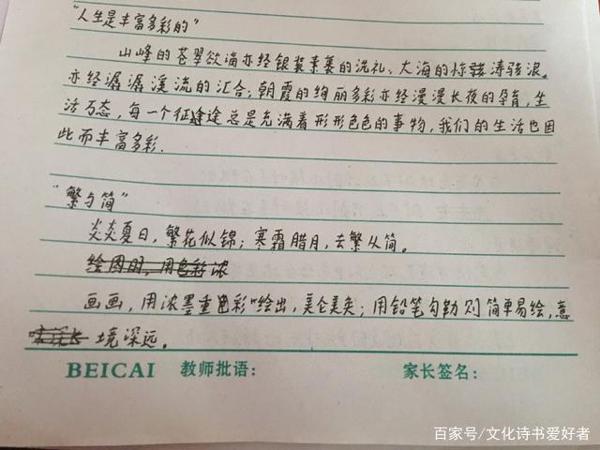 “人生是丰富多彩的”
山峰的苍翠欲滴亦经银装素裹的洗礼、大海的惊骇涛骇浪,
亦经潺潺溪流的汇合;朝霞的绚丽多彩亦经漫漫长夜的孕育,生
活万态,每一个征途总是充满着形形色色的事物,我们的生活也因
此而丰富多彩.
“繁与简”
炎炎夏日,繁花似锦;寒霜腊月,去繁从简。
绘图时,用色彩浓
画画,用浓墨重彩绘出,美仑美奂;用铅笔勾勒则简单易绘,意
境深远。
BEICAI 教师批语: 家长签名:
百家号/文化诗书爱好者